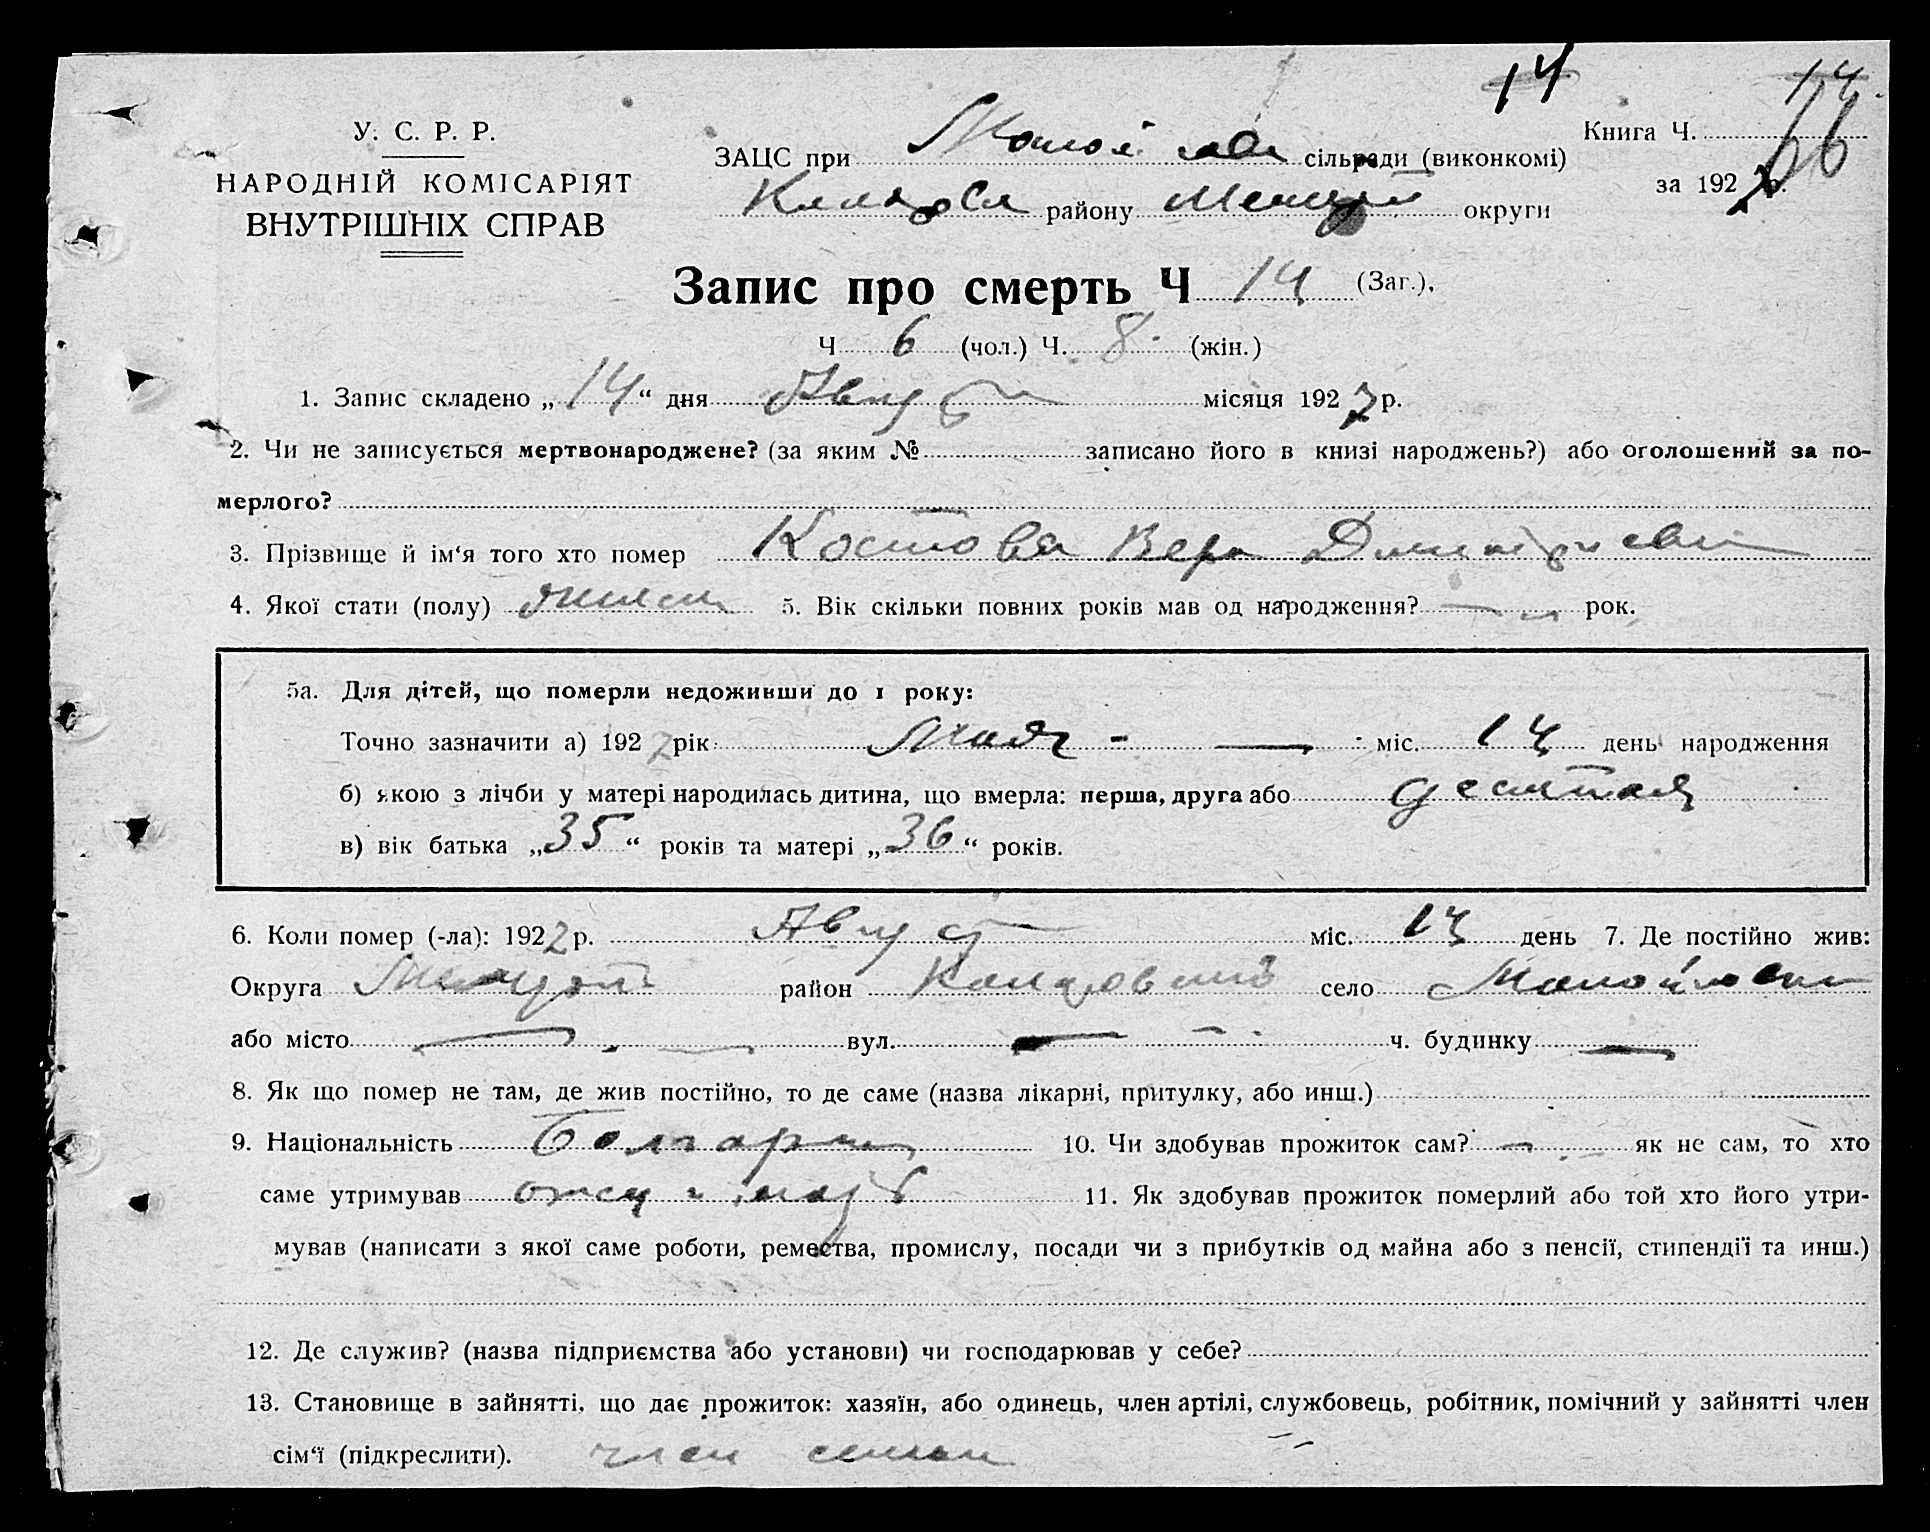 14
14.
66
У. С. Р. Р.
НАРОДНІЙ КОМІСАРІЯТ
ВНУТРІШНІХ СПРАВ
ЗАЦС при сільради (виконкомі)
району округи
Книга Ч.
за 1927 р.
Запис про смерть Ч 14 (Заг.),
Ч 6 (чол.) Ч. 8. (жін.)
1. Запис складено „14“ дня Август місяця 1927 р.
2. Чи не записується мертвонароджене? (за яким № записано його в книзі народжень?) або оголошений за по-
мерлого?
3. Прізвище й ім‘я того хто помер Костова Вера Дмитриевна
4. Якої стати (полу) женск 5. Вік скільки повних років мав од народження? — рок.
5а. Для дітей, що померли недоживши до 1 року:
Точно зазначити а) 1927 рік Мая - — міс. 14 день народження
б) якою з лічби у матері народилась дитина, що вмерла: перша, друга або десятая
в) вік батька „35“ років та матері „36“ років.
6. Коли помер (-ла): 1927 р. Август міс. 13 день 7. Де постійно жив:
Округа район Коларовский село Манойловка
або місто — вул. — ч. будинку —
8. Як що помер не там, де жив постійно, то де саме (назва лікарні, притулку, або инш.)
9. Національність Болгарка 10. Чи здобував прожиток сам? — як не сам, то хто
саме утримував отец и мать 11. Як здобував прожиток померлий або той хто його утри-
мував (написати з якої саме роботи, ремества, промислу, посади чи з прибутків од майна або з пенсії, стипендії та инш.)
12. Де служив? (назва підприємства або установи) чи господарював у себе?
13. Становище в зайнятті, що дає прожиток: хазяїн, або одинець, член артілі, службовець, робітник, помічний у зайнятті член
сім‘ї (підкреслити). член семьи